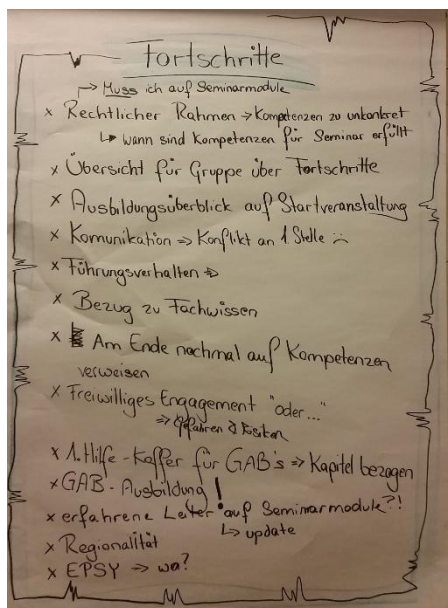 Fortschritte
→ Muss ich auf Seminarmodule
x Rechtlicher Rahmen → Kompetenzen zu unkonkret
↳ wann sind Kompetenzen für Seminar erfüllt
x Übersicht für Gruppe über Fortschritte
x Ausbildungsüberblick auf Startveranstaltung
x Komunikation ⇒ Konflikt an 1. Stelle :(
x Führungsverhalten ⇒
x Bezug zu Fachwissen
x Am Ende nochmal auf Kompetenzen
verweisen
x Freiwilliges Engagement "oder..."
⇒ Gefahren & Risiken
x 1. Hilfe-Koffer für GAB's ⇒ Kapitel bezogen
x GAB-Ausbildung!
x erfahrene Leiter auf Seminarmodule?!
↳ update
x Regionalität
x EPSY → wo?